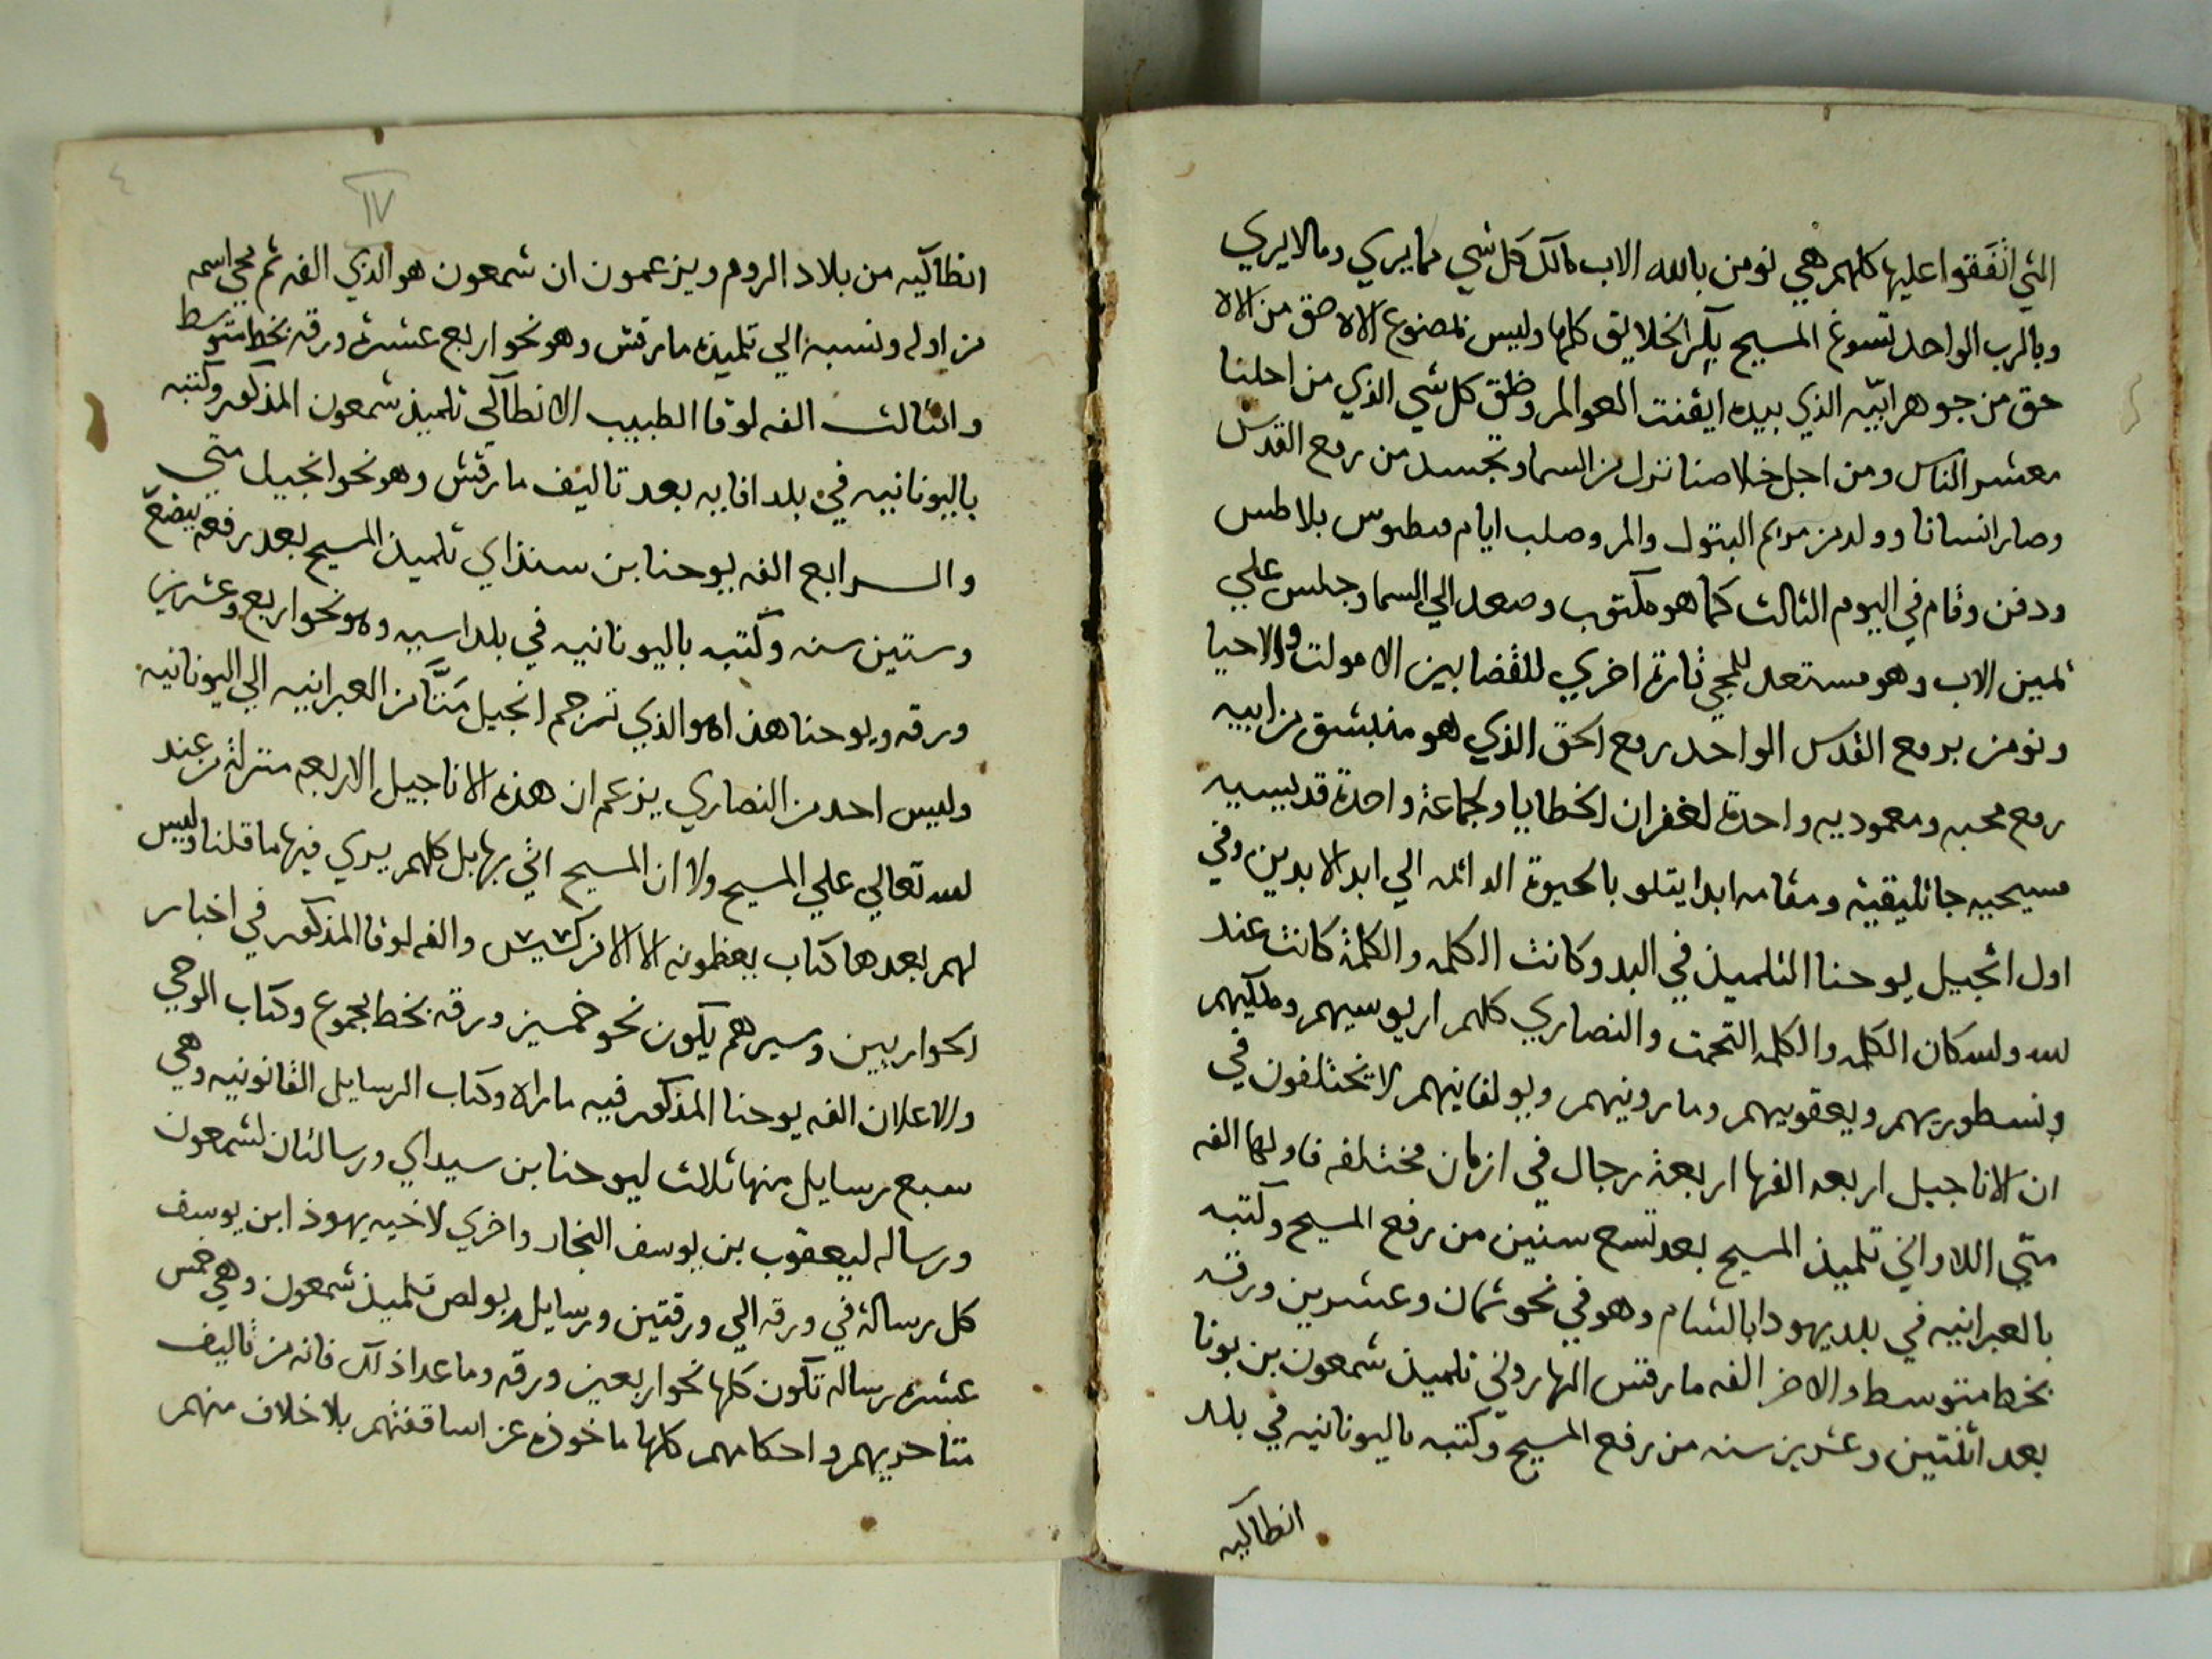 التي اتفقوا عليها كلهم هي نومن بالله الاب مالك كل شي مما يري وما لا يري
وبالرب الواحد تسوع المسيح بكر الخلايق كلها وليس بمصنوع الاه حق من الاه
حق من جوهر ابيه الذي بيده ايقنت العوالم وخلق كل شي الذي من احلنا
معشر الناس ومن اجل خلاصنا نزل من السما وتجسد من روح القدس
وصار انسانا وولد من مريم البتول والم وصلب ايام بلاطس
ودفن وقام في اليوم الثالث كما هو مكتوب وصعد الي السما وجلس علي
يمين الاب وهو مستعد للمجي تارة اخري للقضا بين الاموات والاحيا
ونومن بروح القدس الواحد روح الحق الذي هو منبشق من ابيه
روح محبه ومعموديه واحدة لغفران الخطايا ولجماعة واحدة قديسيه
مسيحيه جاثليقية ومقامه ابدا يتلو بالحيوة الدائمه الي ابد الابدين وفي
اول انجيل يوحنا التلميذ في البدو كانت الكلمه والكلمة كانت عند
لله ولله كان الكلمه والكلمه التحمت والنصاري كلهم اريوسيهم وملكيهم
ونسطوريهم ويعقوبيهم ومارونيهم وبولقانيهم لا يختلفون في
ان الاناجيل اربعه الفها اربعة رجال في ازمان مختلفه فاولها الفه
متي اللاواني تلميذ المسيح بعد تسع سنين من رفع المسيح وكتبه
بالعبرانيه في بلد يهودا بالشام وهو في نحو ثمان وعشرين ورقه
بخط متوسط والاخر الفه مارقس الهاروني تلميذ شمعون بن يونا
بعد اثنتين وعشرين سنه من رفع المسيح وكتبه باليونانيه في بلد
انطاكيه
٤
IV
انطاكيه من بلاد الروم ويزعمون ان شمعون هو الذي الفه ثم محي اسمه
من اوله ونسبه الي تلميذه مارقش وهو نحو اربع عشرة ورقه بخط متوسط
والثالث الفه لوقا الطبيب الانطاكي تلميذ شمعون المذكور وكتبه
باليونانيه في بلد اقايه بعد تاليف مارقش وهو نحو انجيل متي
والرابع الفه يوحنا بن سنذاي تلميذ المسيح بعد رفعه ببضع
وستين سنه وكتبه باليونانيه في بلد اسيه وهو نحو اربع وعشرين
ورقه ويوحنا هذا هو الذي ترجم انجيل متّا من العبرانيه الي اليونانيه
وليس احد من النصاري يزعم ان هذه الاناجيل الاربعه منزلة من عند
لله تعالي علي المسيح ولا ان المسيح اتي بها بل كلهم يري فيها ما قلنا وليس
لهم بعدها كتاب يعظمونه الا الافركسيس والفه لوقا المذكور في اخبار
الحواريين وسيرهم يكون نحو خمسين ورقه بخط مجموع وكتاب الوحي
والاعلان الفه يوحنا المذكور فيه ما راه وكتاب الرسايل القانونيه وهي
سبع رسايل منها ثلاث ليوحنا بن سيداي ورسالتان لشمعون
ورساله ليعقوب بن يوسف النجار واخري لاخيه يهوذ ابن يوسف
كل رسالة في ورقه الي ورقتين ورسايل بولص تلميذ شمعون وهي خمس
عشره رساله تكون كلها نحو اربعين ورقه وما عدا ذلك فانه من تاليف
متاخريهم واحكامهم كلها ماخوذه عن اساقفتهم بلا خلاف منهم